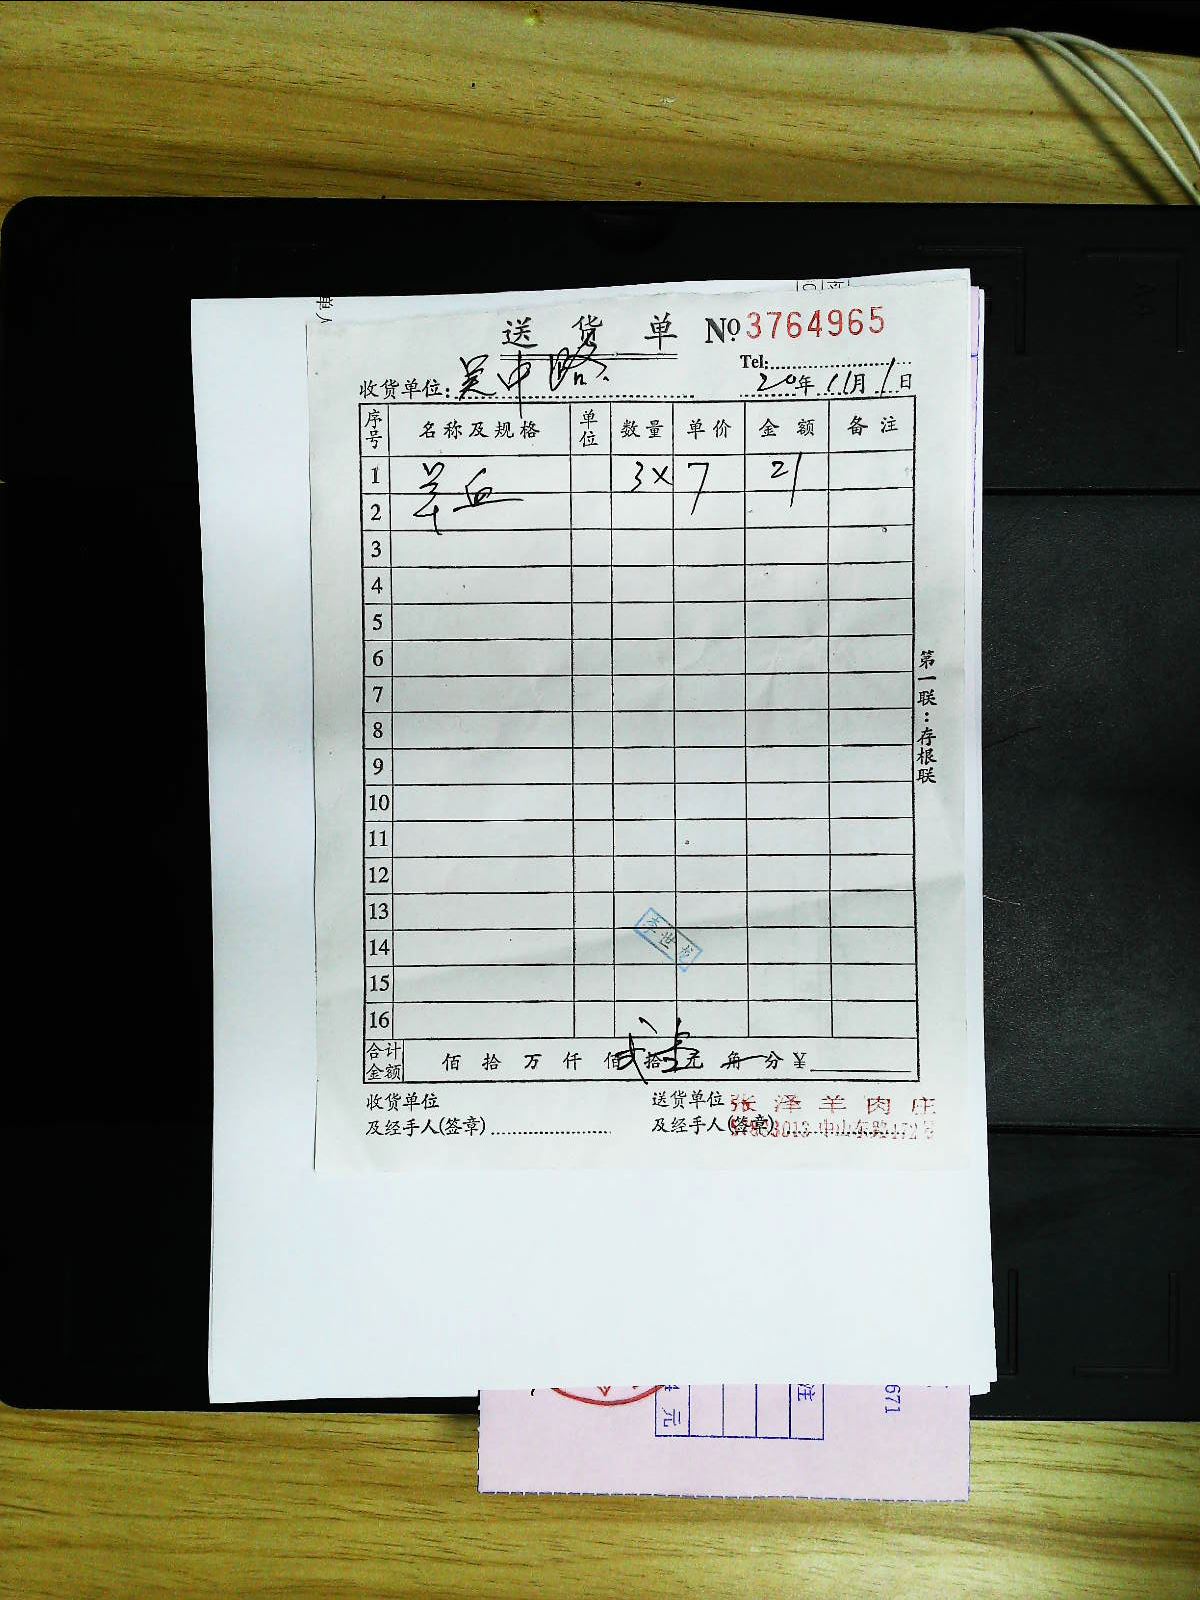 送货单 №3764965
Tel:
收货单位: 吴中路 20年11月1日
序号 名称及规格 单位 数量 单价 金额 备注
1 羊血 3× 7 21
2
3
4
5
6
7
8
9
10
11
12
13
李世龙
14
15
16
合计金额 佰拾万仟佰贰拾壹元角分¥
第一联:存根联
收货单位 送货单位 张泽羊肉庄
及经手人(签章) 及经手人(签章) 中山东路472号
671
注
元